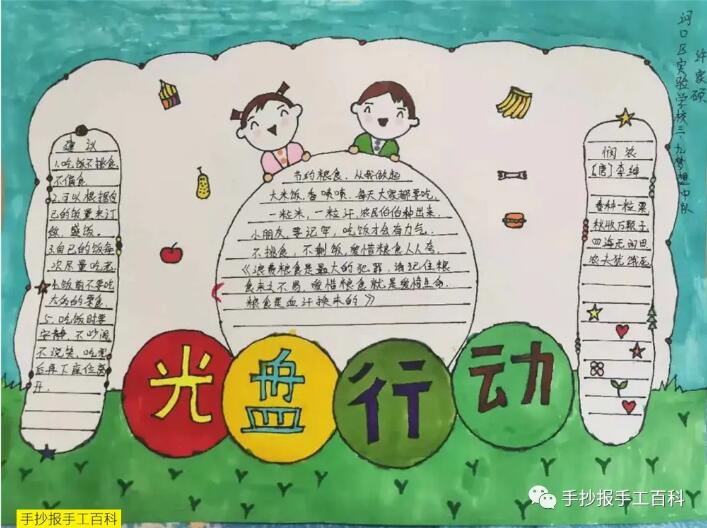 建议
1.吃饭不挑食,
不偏食.
2.可以根据自
己的饭量来订
做,盛饭.
3.自己的饭每
次尽量吃光
4.饭前不要吃
大量的零食.
5.吃饭时要
安静,不吵闹
不说笑,吃完
后再下座位离
开.
节约粮食,从我做起
大米饭,香喷喷,每天大家都要吃.
一粒米,一粒汗,农民伯伯种出来.
小朋友,要记牢,吃饭才会有力气.
不挑食,不剩饭,爱惜粮食人人夸.
《浪费粮食是最大的犯罪,请记住粮
食来之不易,爱惜粮食就是爱惜生命.
粮食是血汗换来的》
悯农
【唐】李绅
春种一粒粟
秋收万颗子
四海无闲田
农夫犹饿死
河口区实验学校三.九梦想中队
许家硕
光盘行动
手抄报手工百科
手抄报手工百科